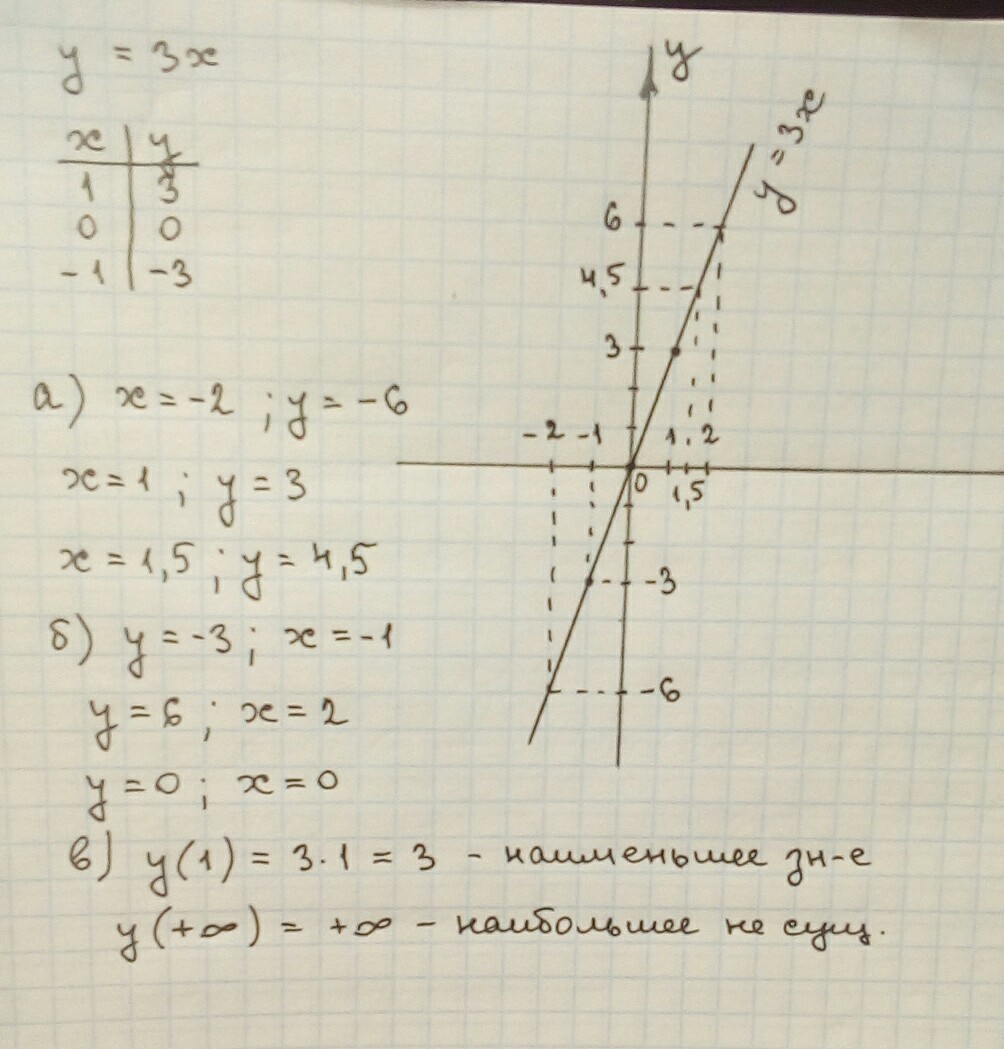 y = 3x
x | y
1 | 3
0 | 0
-1 | -3
а) x = -2 ; y = -6
x = 1 ; y = 3
x = 1,5 ; y = 4,5
б) y = -3 ; x = -1
y = 6 ; x = 2
y = 0 ; x = 0
в) y(1) = 3·1 = 3 - наименьшее зн-е
y(+∞) = +∞ - наибольшее не сущ.
y
y = 3x
6
4,5
3
-2 -1 1 2
0 1,5
-3
-6